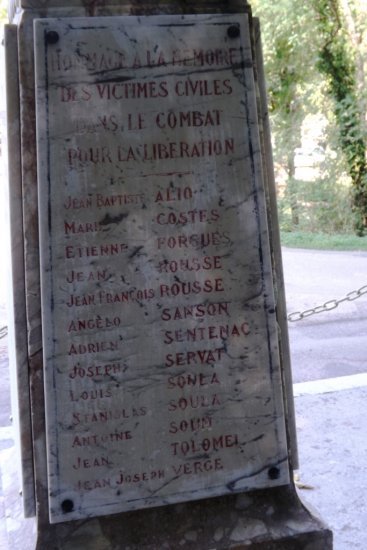 HOMMAGE A LA MÉMOIRE
DES VICTIMES CIVILES
DANS LE COMBAT
POUR LA LIBÉRATION
JEAN BAPTISTE ALIO
MARIE COSTES
ETIENNE FORGUES
JEAN ROUSSE
JEAN FRANÇOIS ROUSSE
ANGÈLO SANSON
ADRIEN SENTENAC
JOSEPH SERVAT
LOUIS SOULA
STANISLAS SOULA
ANTOINE SOUM
JEAN TOLOMEI
JEAN JOSEPH VERGÉ